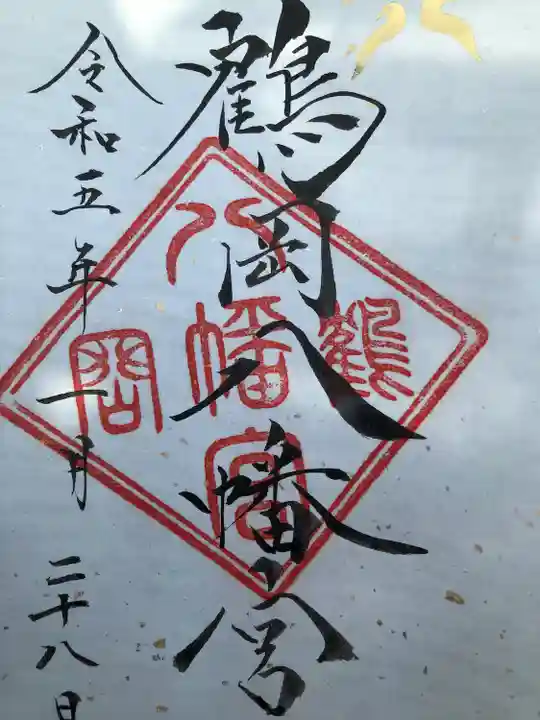 鶴岡八幡宮
令和五年一月二十八日
鶴
八幡宮
岡
八